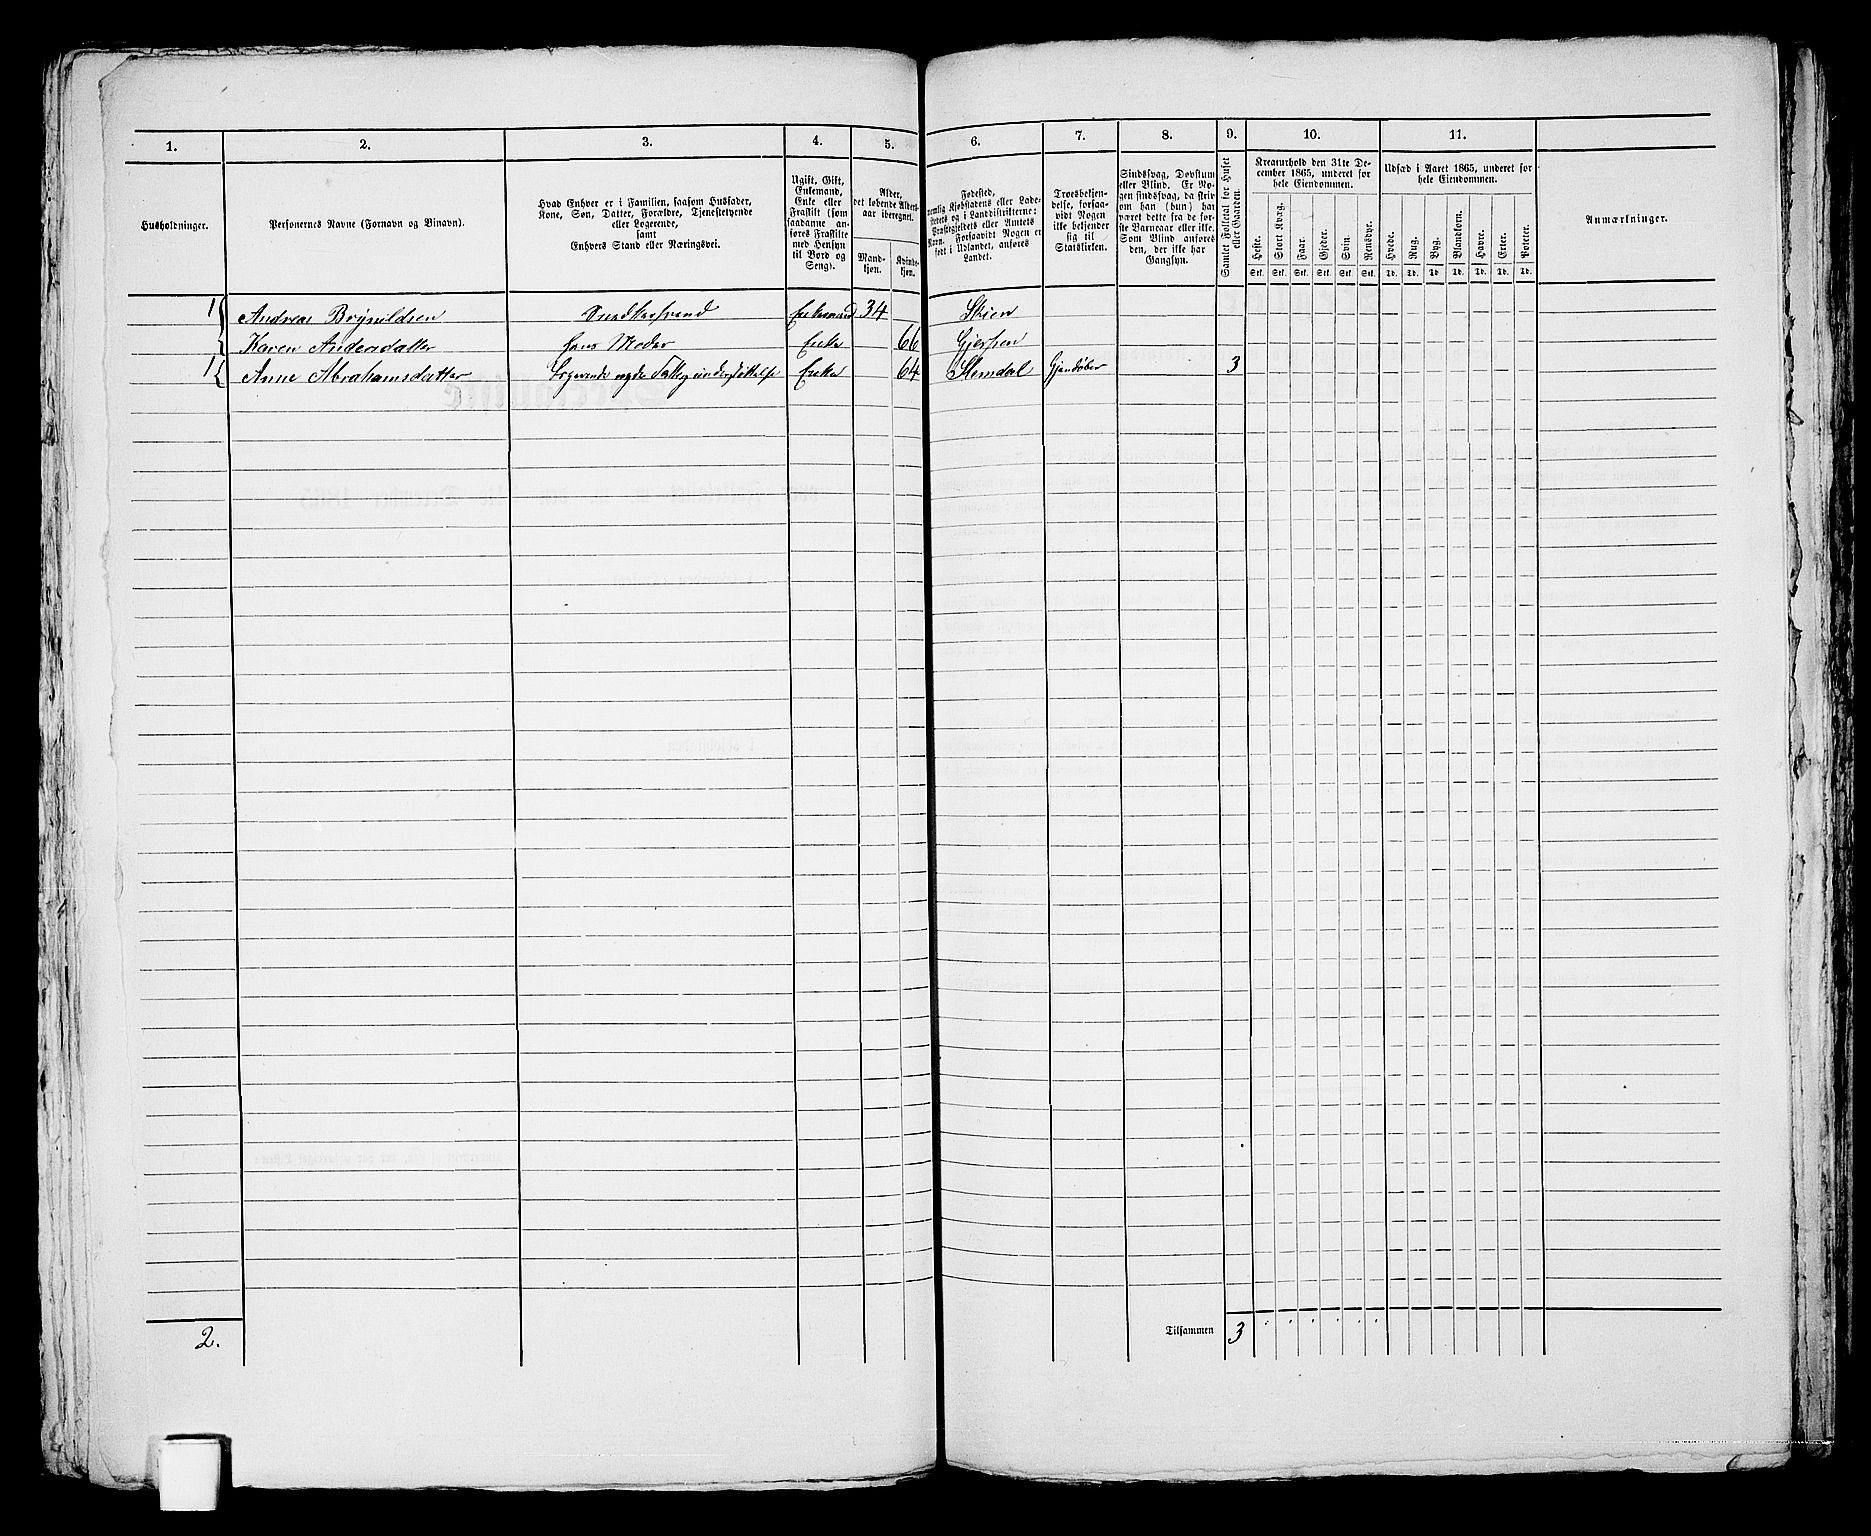 1. 2. 3. 4. 5. 6. 7. 8. 9. 10. 11.
Husholdninger.
Personernes Navne (Fornavn og Binavn).
Hvad Enhver er i Familien, saasom Husfader,
Kone, Søn, Datter, Forældre, Tjenestetyende
eller Logerende,
samt
Enhvers Stand eller Næringsvei.
Ugift, Gift,
Enkemand,
Enke eller
Fraskilt (som
saadanne an-
føres Fraskilte
med Hensyn
til Bord og
Seng).
Alder,
det løbende Alders-
aar iberegnet.
Mand-
kjøn.
Kvinde-
kjøn.
Fødested,
nemlig Kjøbstadens eller Lade-
stedets og i Landdistrikterne:
Præstegjeldets eller Amtets
Navn. Forsaavidt Nogen er
født i Udlandet, anføres
Landet.
Troesbekjen-
delse, forsaa-
vidt Nogen
ikke bekjender
sig til
Statskirken.
Sindssvag, Døvstum
eller Blind. Er No-
gen sindssvag, da skriv
om han (hun) har
været dette fra de før-
ste Barneaar eller ikke.
Som Blind anføres
den, der ikke har
Gangsyn.
Samlet Folketal for Huset
eller Gaarden.
Kreaturhold den 31te De-
cember 1865, underet for
hele Eiendommen.
Heste. Stort Kvæg. Faar. Gjeder. Svin. Rensdyr.
Stk. Stk. Stk. Stk. Stk. Stk.
Udsæd i Aaret 1865, underet for
hele Eiendommen.
Hvede. Rug. Byg. Blandkorn. Havre. Erter. Poteter.
Td. Td. Td. Td. Td. Td. Td.
Anmærkninger.
1 Andreas Brynildsen Enkemand 34 Skien
Karen Andersdatter Hans Moder Enke 66 Gjerpen
1 Anne Abrahamsdatter Logerende nyder Fattigunderstøttelse Enke 64 Slemdal Gjendøber 3
2. Tilsammen 3